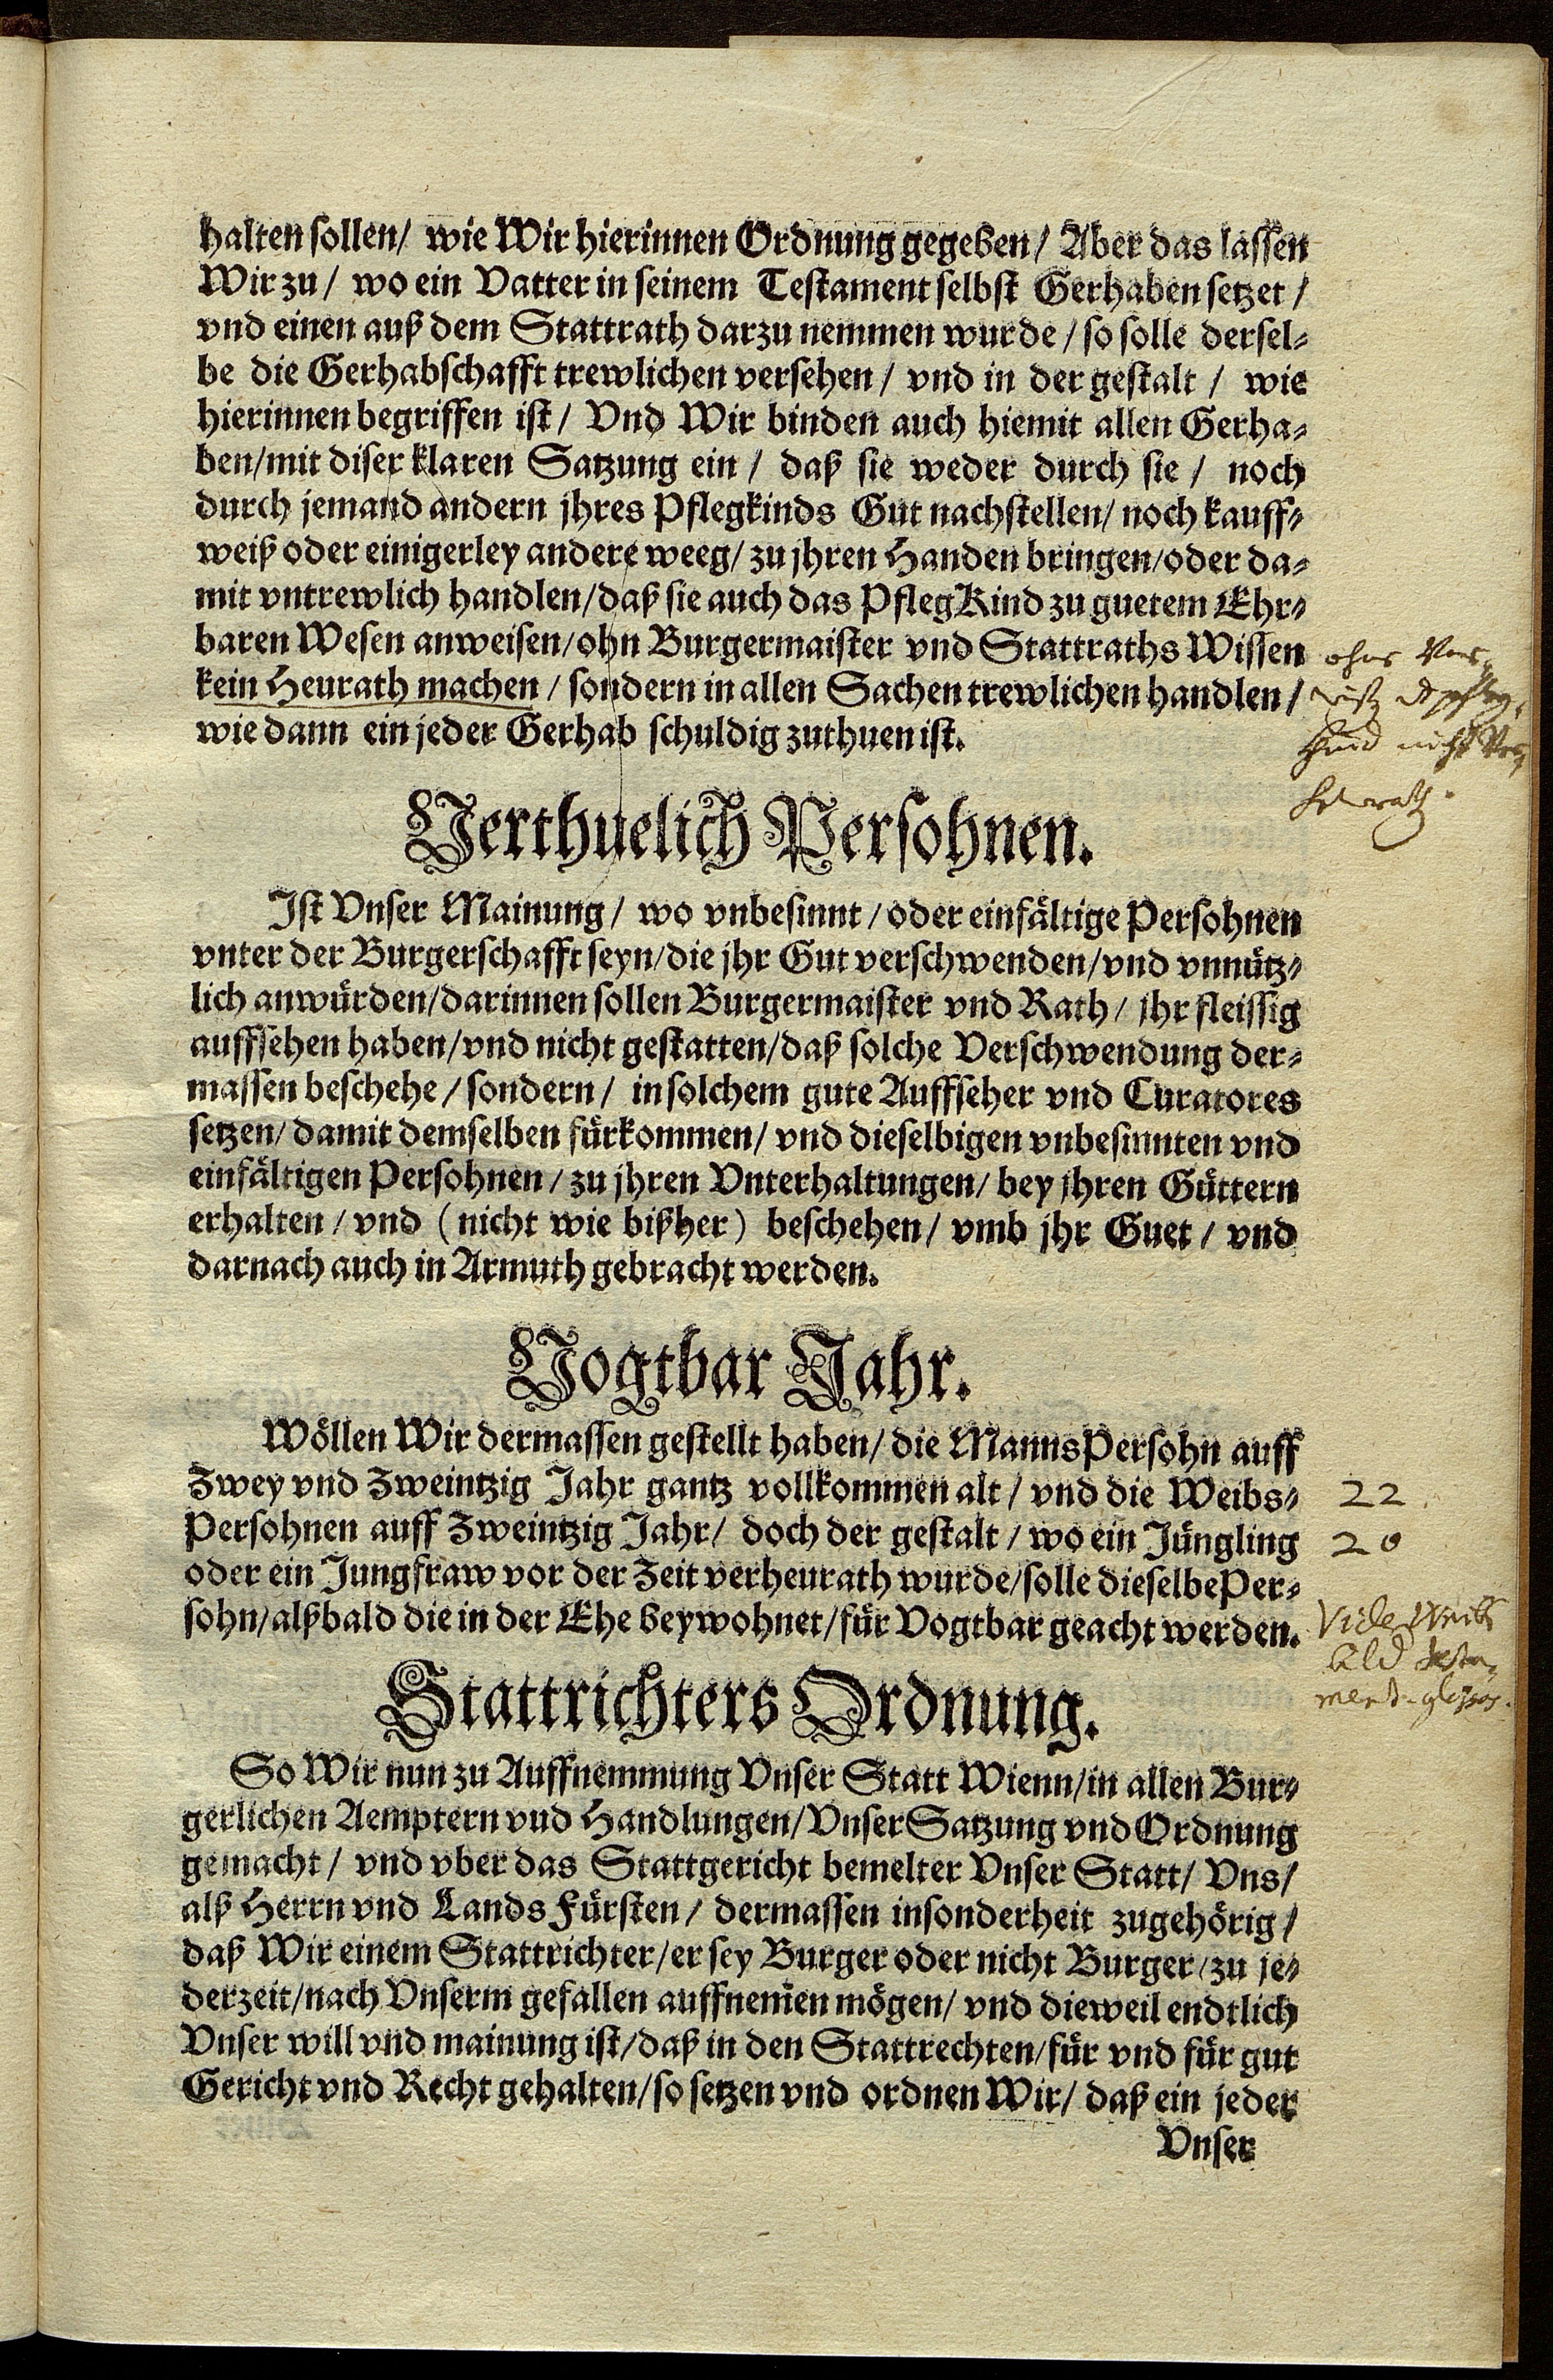 halten sollen/ wie Wir hierinnen Ordnung gegeben/ Aber das lassen
Wir zu/ wo ein Vatter in seinem Testament selbst Gerhaben setzet/
vnd einen auß dem Stattrath darzu nemmen wurde/ so solle dersel-
be die Gerhabschafft trewlichen versehen/ vnd in der gestalt/ wie
hierinnen begriffen ist/ Vnd Wir binden auch hiemit allen Gerha-
ben/mit diser klaren Satzung ein/ daß sie weder durch sie/ noch
durch jemand andern jhres Pflegkinds Gut nachstellen/ noch kauff-
weiß oder einigerley andere weeg/ zu jhren Handen bringen/oder da-
mit vntrewlich handlen/daß sie auch das PflegKind zu guetem Ehr-
baren Wesen anweisen/ohn Burgermaister vnd Stattraths Wissen
kein Heurath machen/ sondern in allen Sachen trewlichen handlen/
wie dann ein jeder Gerhab schuldig zuthuen ist.
Verthuelich Persohnen.
Ist Vnser Mainung/ wo vnbesinnt/oder einfältige Persohnen
vnter der Burgerschafft seyn/die jhr Gut verschwenden/vnd vnnütz-
lich anwürden/darinnen sollen Burgermaister vnd Rath/ jhr fleissig
auffsehen haben/vnd nicht gestatten/daß solche Verschwendung der-
massen beschehe/sondern/ in solchem gute Auffseher vnd Curatores
setzen/ damit demselben fürkommen/ vnd dieselbigen vnbesinnten vnd
einfältigen Persohnen/zu jhren Vnterhaltungen/ bey jhren Güttern
erhalten/ vnd (nicht wie bißher) beschehen/ vmb jhr Guet/ vnd
darnach auch in Armuth gebracht werden.
Vogtbar Jahr.
Wöllen Wir dermassen gestellt haben/ die MannsPersohn auff
Zwey vnd Zweintzig Jahr gantz vollkommen alt/ vnd die Weibs-
Persohnen auff Zweintzig Jahr/ doch der gestalt/ wo ein Jüngling
oder ein Jungfraw vor der Zeit verheurath wurde/solle dieselbe Per-
sohn/alßbald die in der Ehe beywohnet/für Vogtbar geacht werden.
22.
20
Vide
Stattrichters Ordnung.
So Wir nun zu Auffnemmung Vnser Statt Wienn/in allen Bur-
gerlichen Aemptern vud Handlungen/Vnser Satzung vnd Ordnung
gemacht/ vnd vber das Stattgericht bemelter Vnser Statt/ Vns/
alß Herrn vnd Lands Fürsten/ dermassen insonderheit zugehörig/
daß Wir einem Stattrichter/er sey Burger oder nicht Burger/zu je-
derzeit/nach Vnserm gefallen auffnem̃en mögen/ vnd dieweil endtlich
Vnser will vnd mainung ist/daß in den Stattrechten/für vnd für gut
Gericht vnd Recht gehalten/so setzen vnd ordnen Wir/ daß ein jeder
Vnser